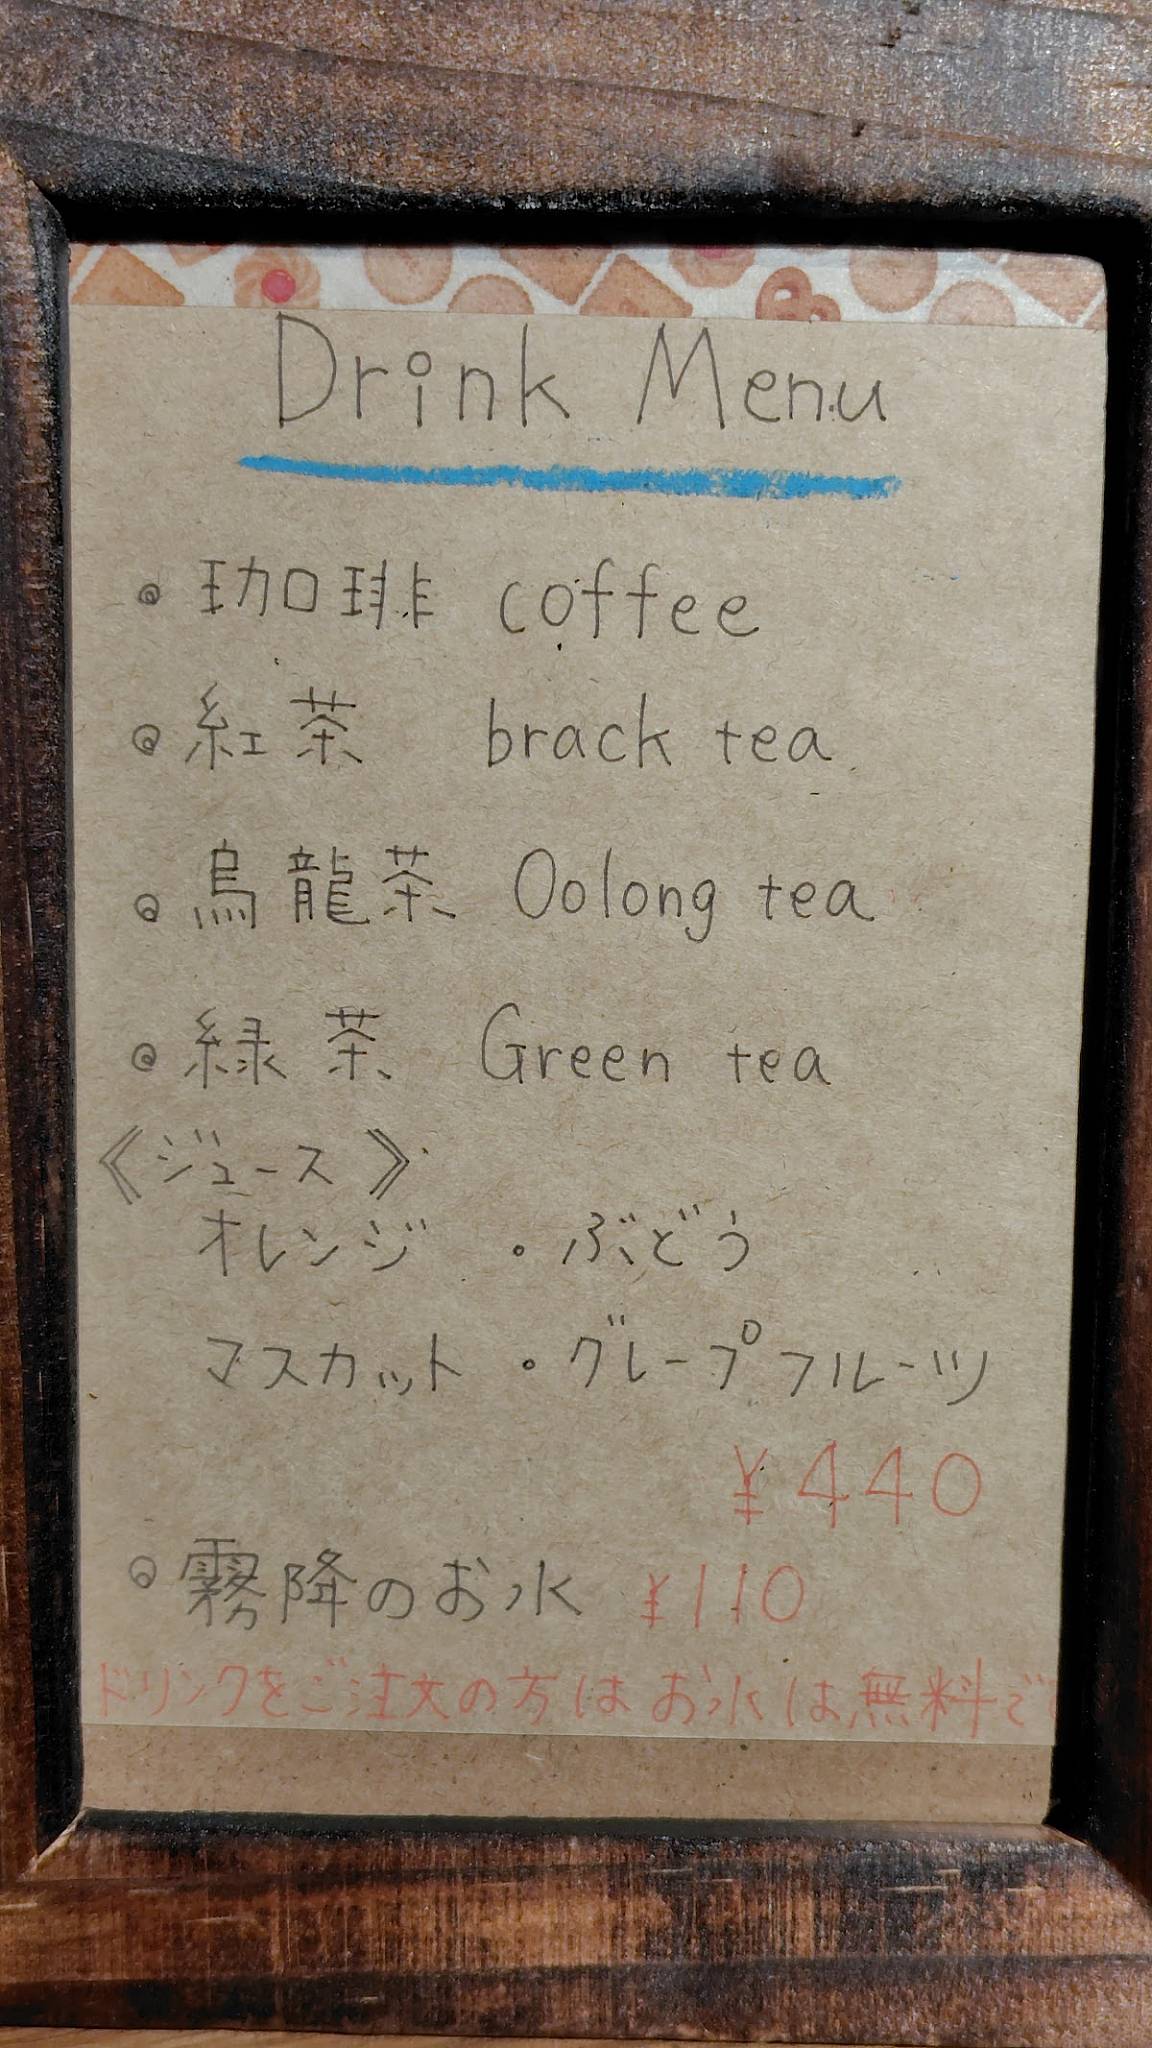 Drink Menu
珈琲 coffee
紅茶 brack tea
烏龍茶 Oolong tea
緑茶 Green tea
《ジュース》
オレンジ ・ぶどう
マスカット ・グレープフルーツ
¥440
霧降のお水 ¥110
ドリンクをご注文の方はお水は無料で